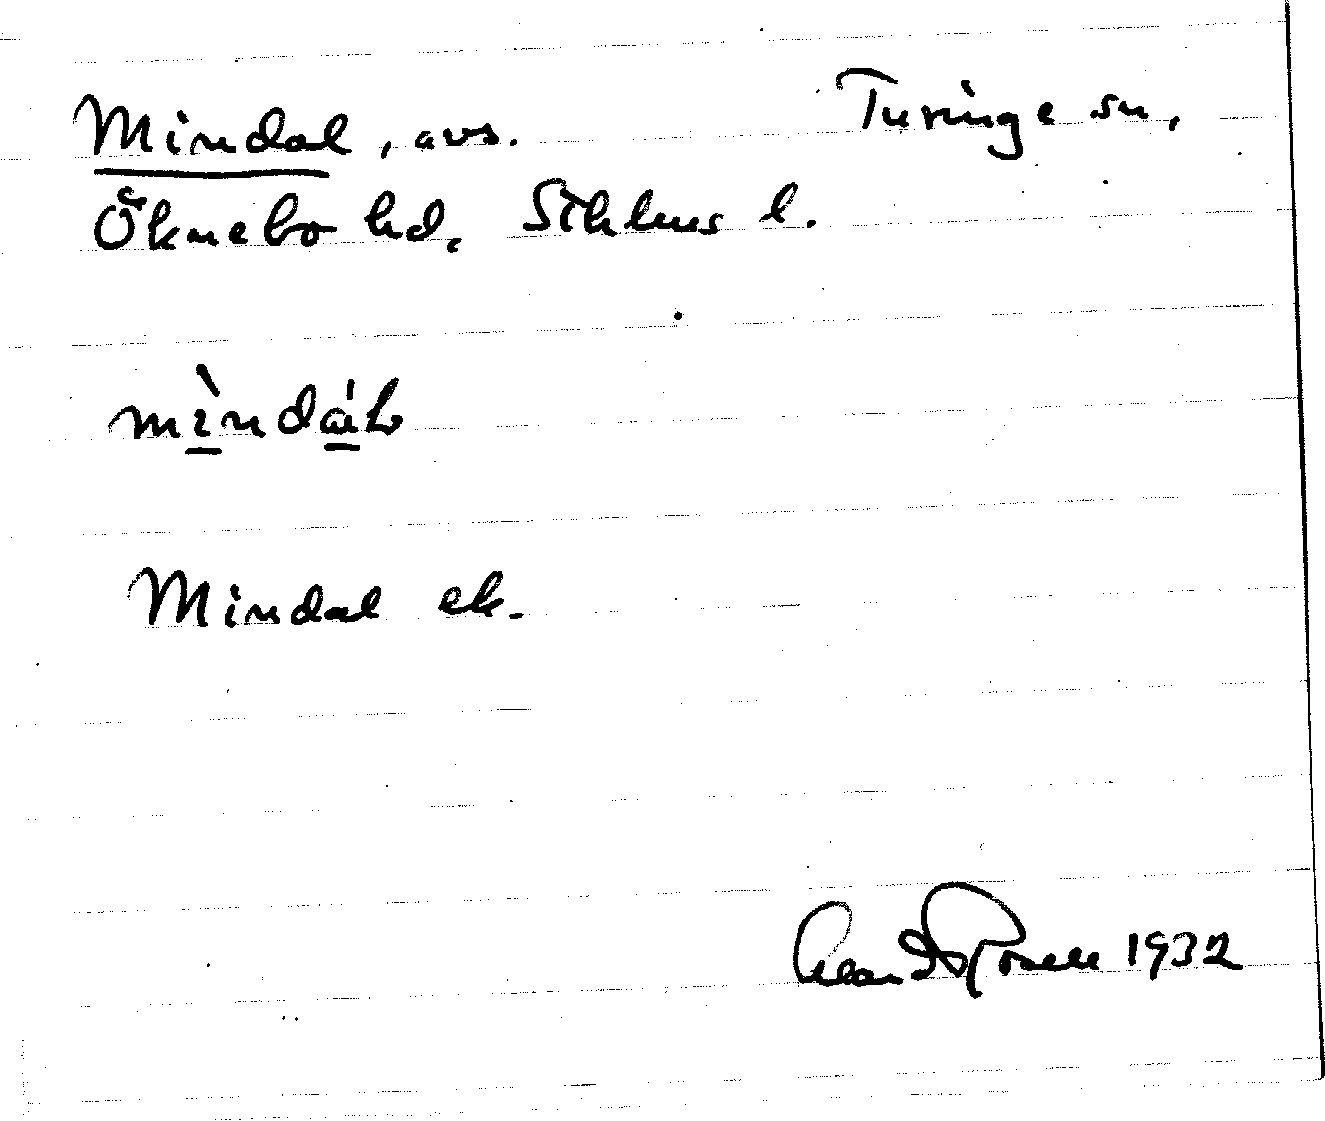 Mindal, avs. Turinge sn,
Öknebo hd. Sthlms l.
mìndáls
Mindal ek.
1932